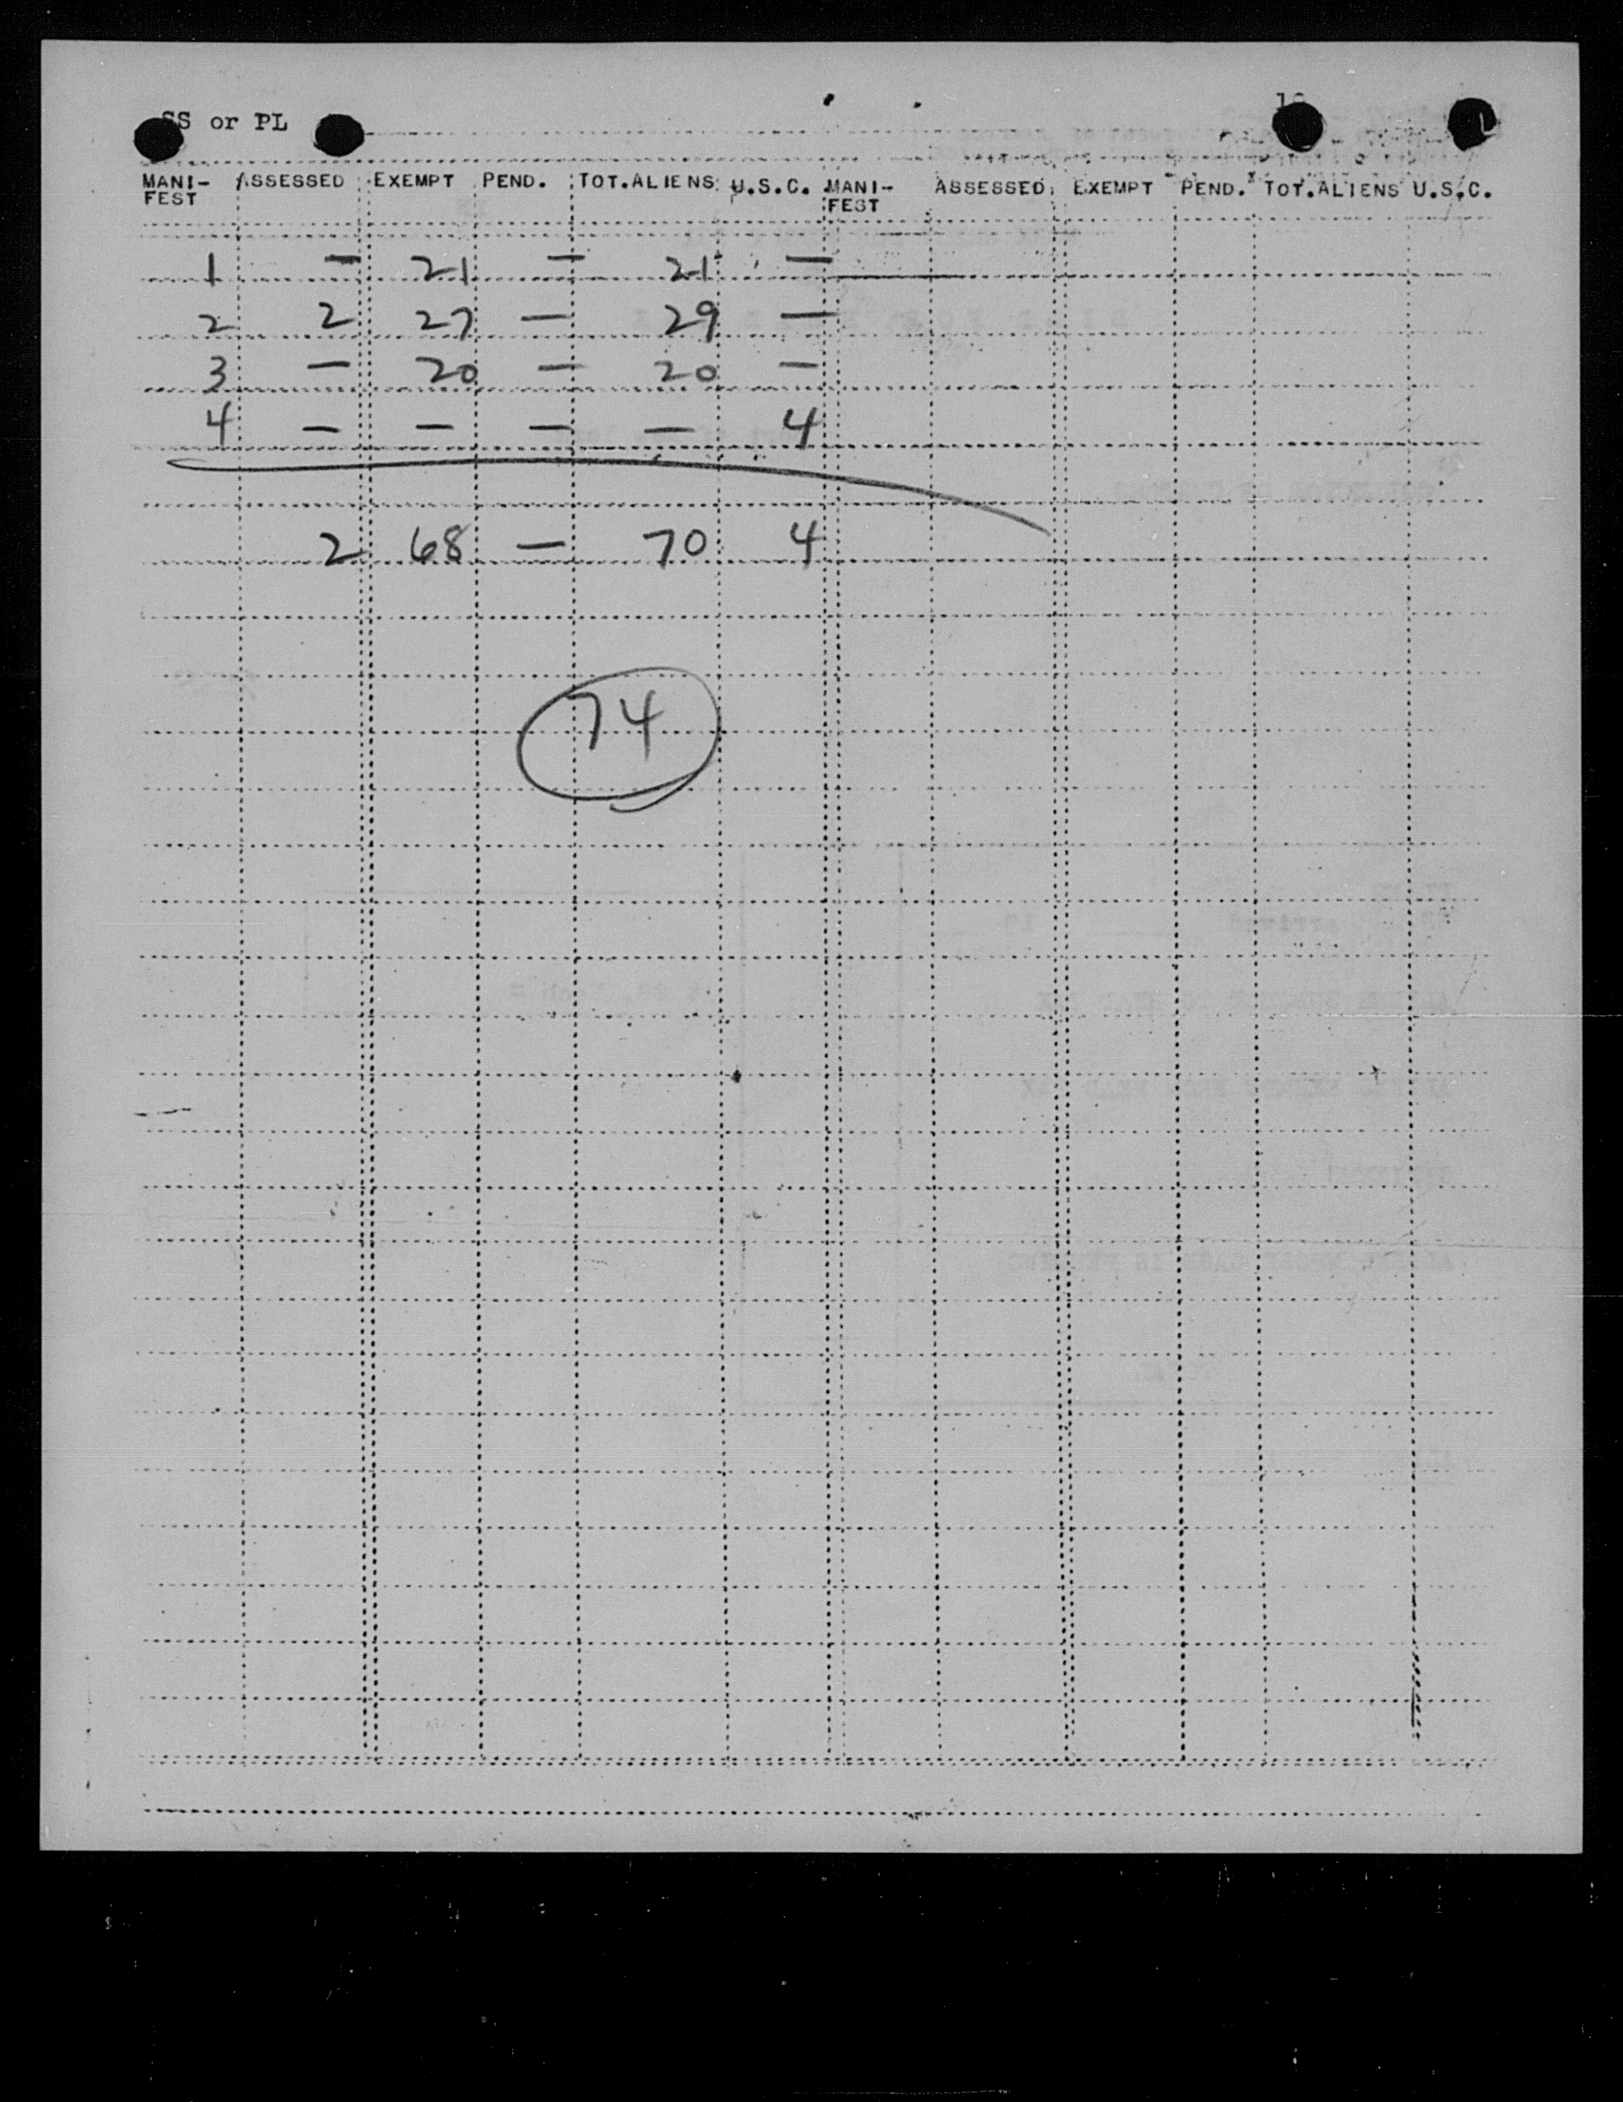 SS or PL
MANI- ASSESSED EXEMPT PEND. TOT.ALIENS U.S.C. MANI- ASSESSED EXEMPT PEND. TOT.ALIENS U.S.C.
FEST FEST
1 — 21 — 21 —
2 2 27 — 29 —
3 — 20 — 20 —
4 — — — — 4
2 68 — 70 4
74